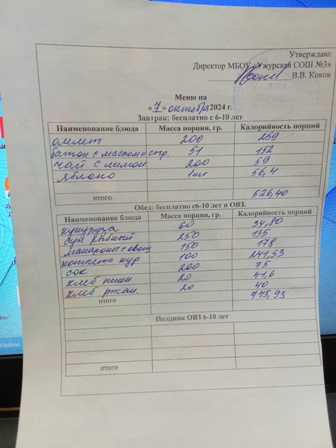 Утверждаю:
Директор МБОУ «Ужурская СОШ №3»
В.В. Коков
Меню на
«7» октября 2024 г.
Завтрак: бесплатно с 6-10 лет
Наименование блюда Масса порции, гр. Калорийность порций
омлет 200 259
батон с маслом и сыр. 51 152
чай с лимоном 200 59
яблоко 1шт 56,4
итого 526,40
Обед: бесплатно с6-10 лет и ОВЗ.
Наименование блюда Масса порции, гр. Калорийность порций
кукуруза 60 34,80
суп рыбный 250 135
макароны с овощ 150 178
котлета кур 100 241,53
сок 200 75
хлеб пшен 20 41,6
хлеб ржан. 20 40
итого 745,93
Полдник ОВЗ 6-10 лет
итого